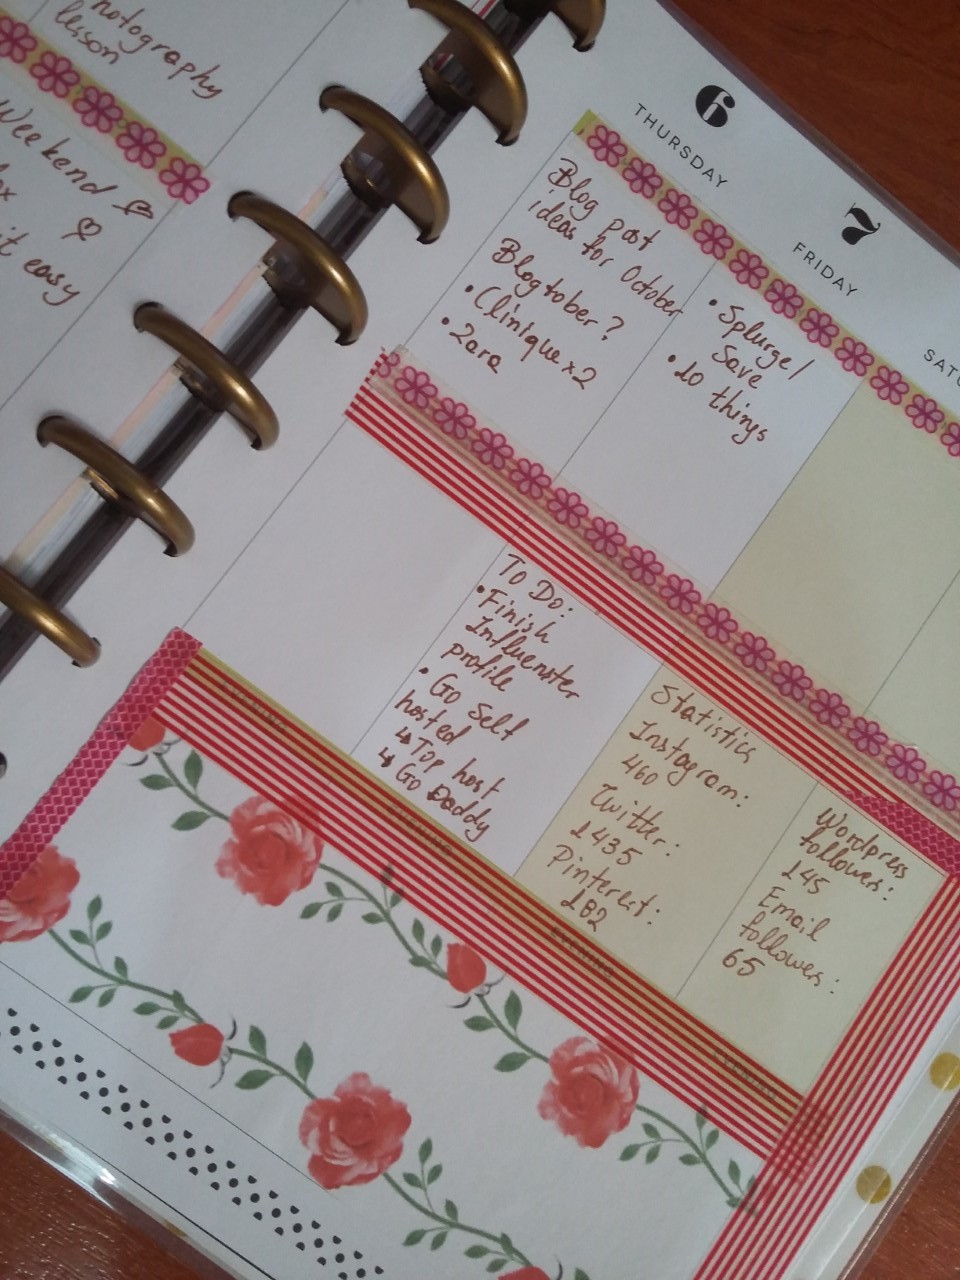 notography
lesson
Weekend
it easy
6
THURSDAY
Blog post
ideas for October
Blogtober?
• Clinique x2
• Zara
7
FRIDAY
• Splurge/
Save
• 10 things
SATU
To Do:
• Finish
Influenster
profile
• Go Self
hosted
↳ Top host
↳ Go Daddy
Statistics
Instagram:
460
Twitter:
1435
Pinterest:
182
Wordpress
followers:
145
Email
followers:
65
EVENING